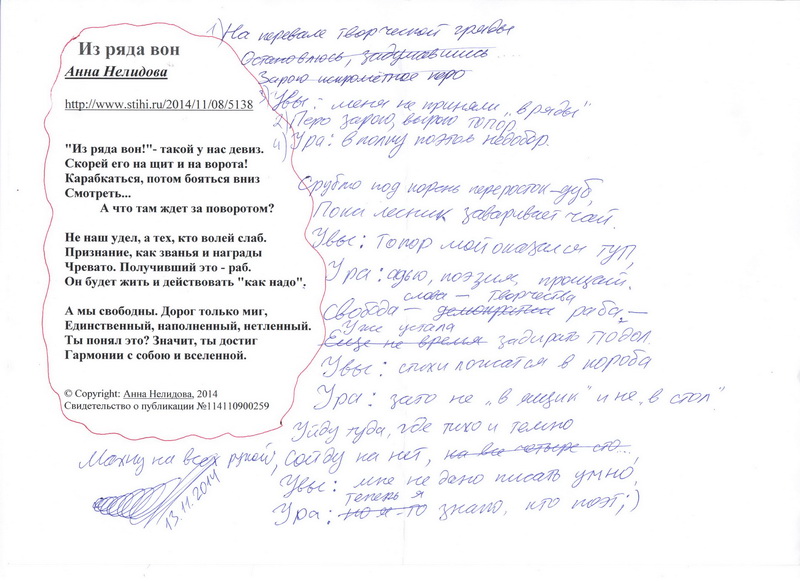 Из ряда вон
Анна Нелидова
http://www.stihi.ru/2014/11/08/5138
"Из ряда вон!"- такой у нас девиз.
Скорей его на щит и на ворота!
Карабкаться, потом бояться вниз
Смотреть...
А что там ждет за поворотом?
Не наш удел, а тех, кто волей слаб.
Признание, как званья и награды
Чревато. Получивший это - раб.
Он будет жить и действовать "как надо".
А мы свободны. Дорог только миг,
Единственный, наполненный, нетленный.
Ты понял это? Значит, ты достиг
Гармонии с собою и вселенной.
© Copyright: Анна Нелидова, 2014
Свидетельство о публикации №114110900259
1) На перевале творческой гряды
Остановлюсь, задумавшись....
Зарою искромётное перо
3) Увы: меня не приняли „в ряды"
2) Перо зарою, вырою топор
4) Ура: в полку поэтов недобор.
Срублю под корень переросток-дуб,
Пока лесник заваривает чай.
Увы: топор мой оказался туп,
Ура: адью, поэзия, прощай.
слова - творчества
Свобода - демократия раба -
Уже устала
Еще не время задирать подол.
Увы: стихи ложатся в короба
Ура: зато не „в ящик" и не „в стол"
Уйду туда, где тихо и темно
Махну на всех рукой, сойду на нет, на все четыре сто...,
Увы: мне не дано писать умно,
теперь я
Ура: но я-то знаю, кто поэт;)
13.11.2014